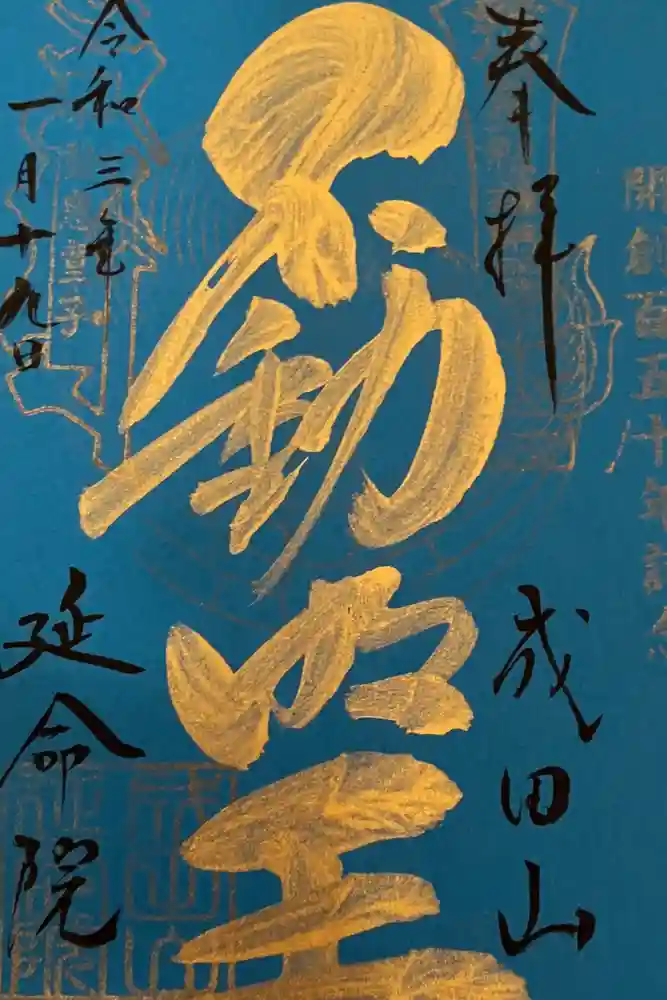 開創百五十年記念
奉拝
成田山
不動明王
令和三年
一月十九日
延命院